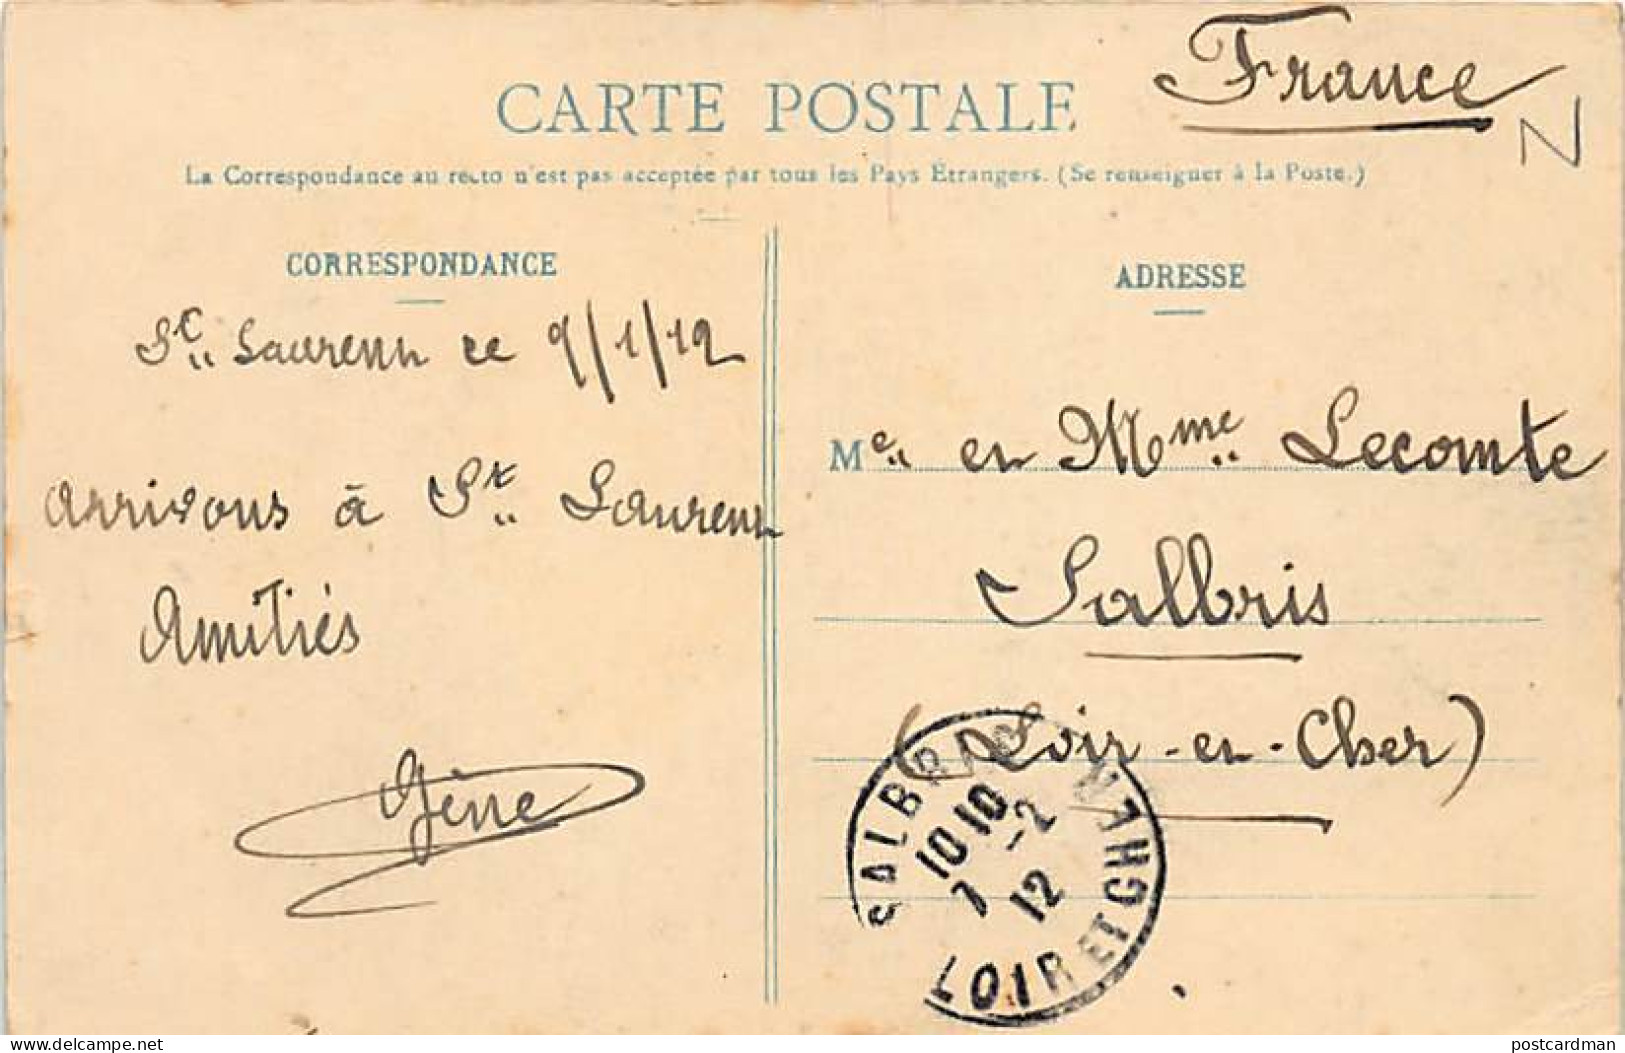 France
N
CARTE POSTALE
La Correspondance au recto n'est pas acceptée par tous les Pays Étrangers. (Se renseigner à la Poste.)
CORRESPONDANCE
St Laurent ce 9/1/12
arrivons à St Laurent
Amitiés
Gène
ADRESSE
Mr et Mme Lecomte
Salbris
(Loir-et-Cher)
SALBRIS
10 10
7 -2
12
LOIR ET CHER
delcampe.net
postcardman